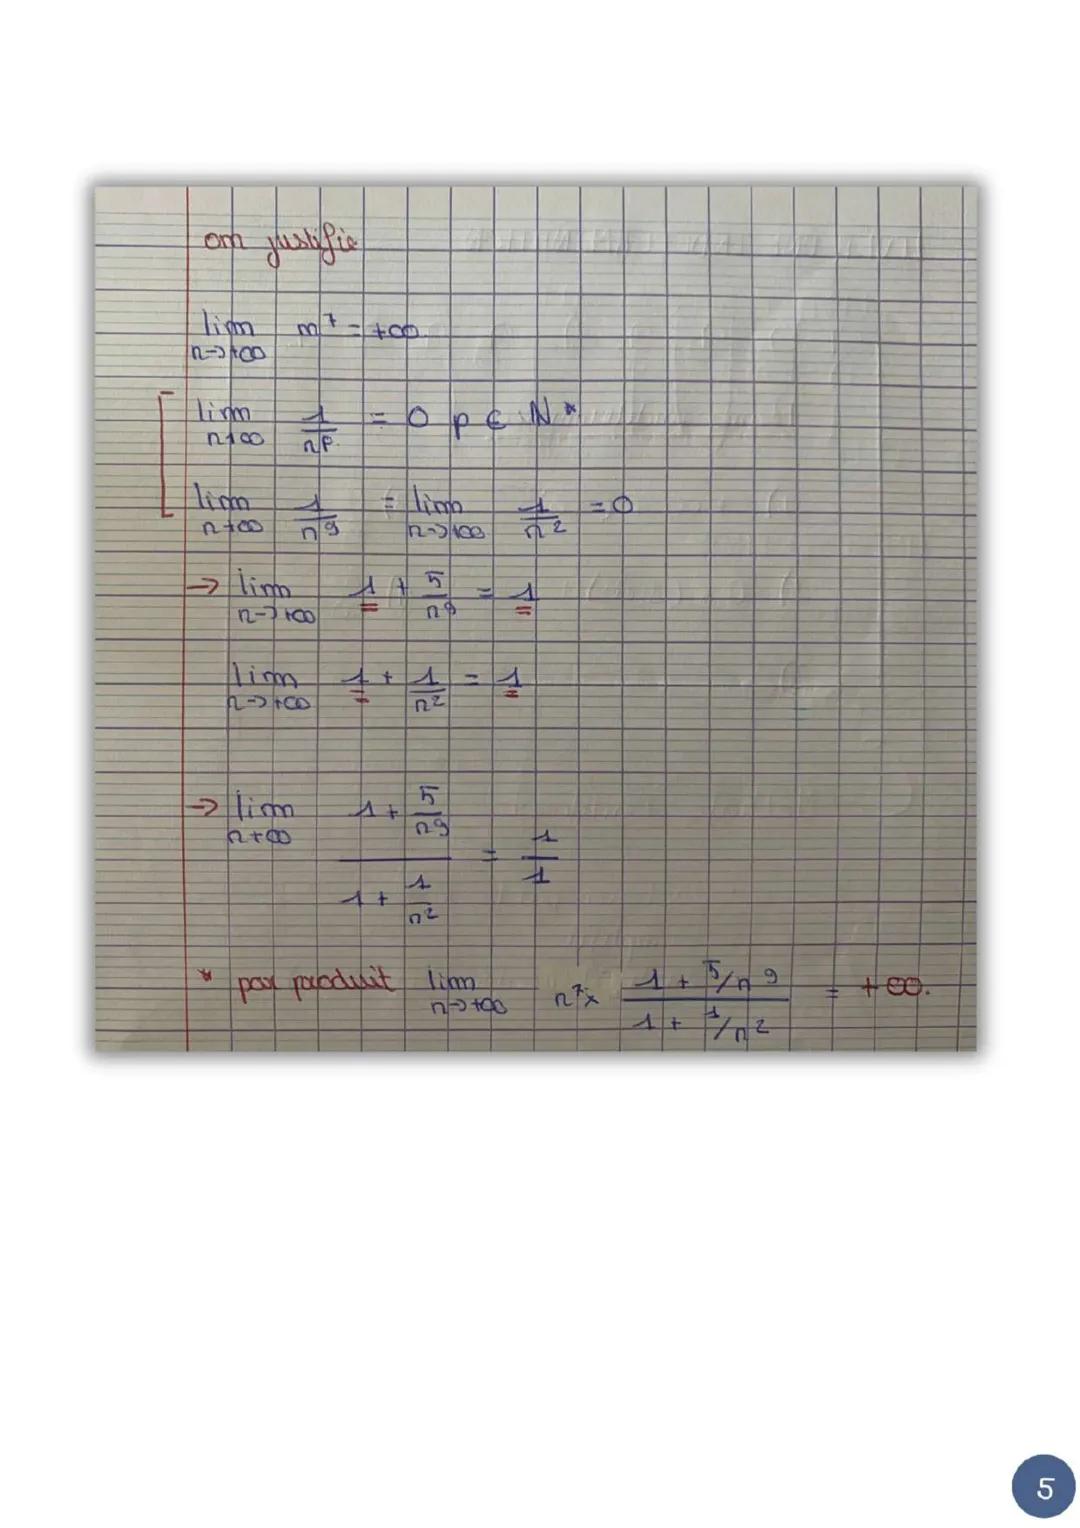 on justifie
lim n⁷ = +∞.
n→+∞
lim 1/nᵖ = 0 p ∈ ℕ*
n+∞
lim 1/n⁹ = lim 1/n² = 0
n+∞ n→+∞
→ lim 1 + 5/n⁹ = 1
n→+∞
lim 1 + 1/n² = 1
n→+∞
→ lim (1 + 5/n⁹)/(1 + 1/n²) = 1/1
n+∞
* par produit lim n⁷ × (1 + 5/n⁹)/(1 + 1/n²) = +∞.
n→+∞
5